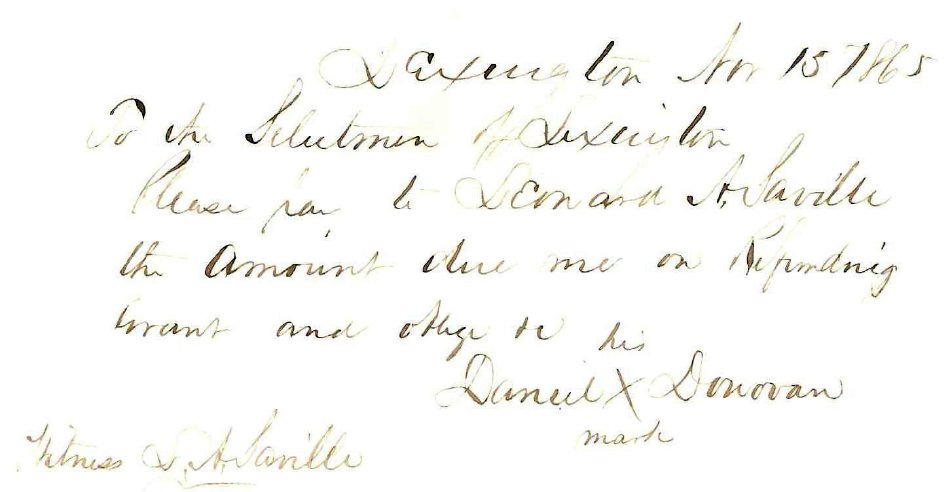 Lexington Nov 15 1865
To the Selectmen of Lexington
Please pay to Leonard A. Saville
the amount due me on Refunding
Grant and oblige &c
his
Daniel X Donovan
mark
Witness L. A. Saville